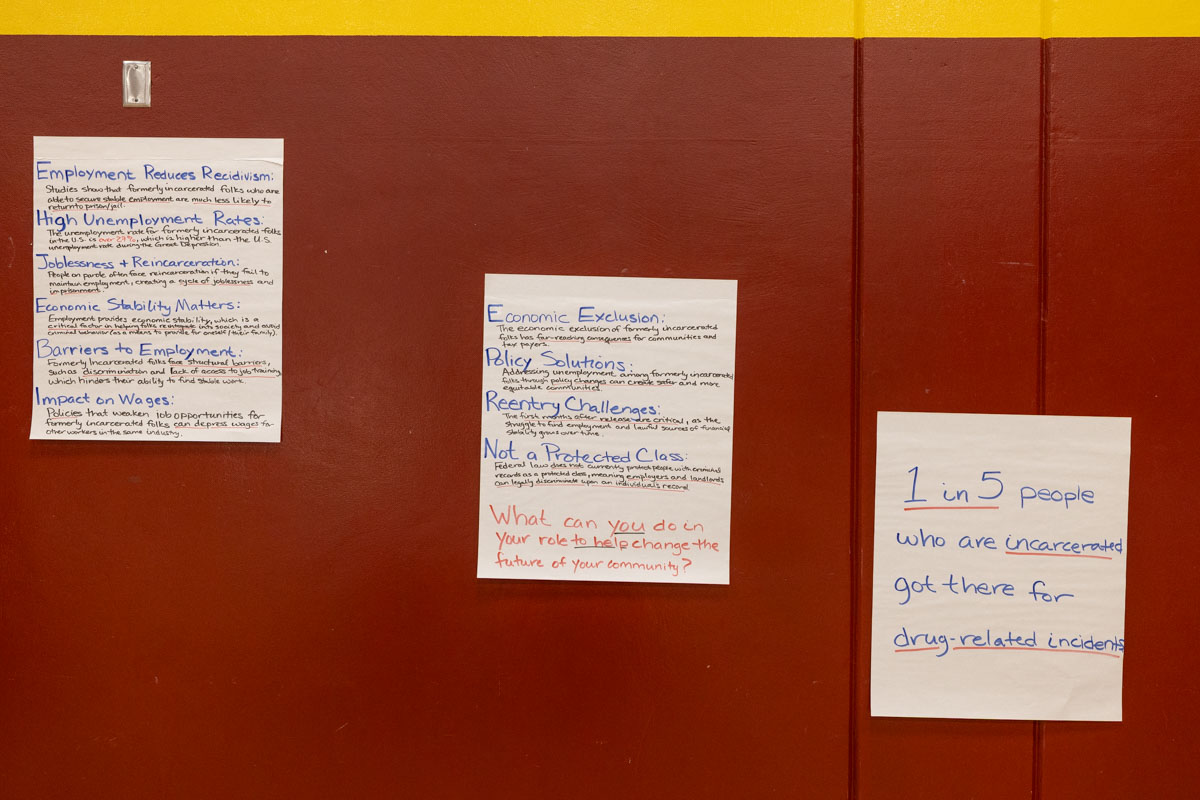 Employment Reduces Recidivism:
Studies show that formerly incarcerated folks who are
able to secure stable employment are much less likely to
return to prison/jail.
High Unemployment Rates:
The unemployment rate for formerly incarcerated folks
in the U.S. is over 27%, which is higher than the U.S.
unemployment rate during the Great Depression.
Joblessness + Reincarceration:
People on parole often face reincarceration if they fail to
maintain employment, creating a cycle of joblessness and
imprisonment.
Economic Stability Matters:
Employment provides economic stability, which is a
critical factor in helping folks reintegrate into society and avoid
criminal behavior (as a means to provide for oneself/their family).
Barriers to Employment:
Formerly Incarcerated folks face structural barriers,
such as discrimination and lack of access to job training,
which hinders their ability to find stable work.
Impact on Wages:
Policies that weaken job opportunities for
formerly incarcerated folks can depress wages for
other workers in the same industry.
Economic Exclusion:
The economic exclusion of formerly incarcerated
folks has far-reaching consequences for communities and
tax payers.
Policy Solutions:
Addressing unemployment among formerly incarcerated
folks through policy changes can create safer and more
equitable communities.
Reentry Challenges:
The first months after release are critical, as the
struggle to find employment and lawful sources of financial
stability grows over time.
Not a Protected Class:
Federal law does not currently protect people with criminal
records as a protected class, meaning employers and landlords
can legally discriminate upon an individuals record.
What can you do in
your role to help change the
future of your community?
1 in 5 people
who are incarcerated
got there for
drug-related incidents